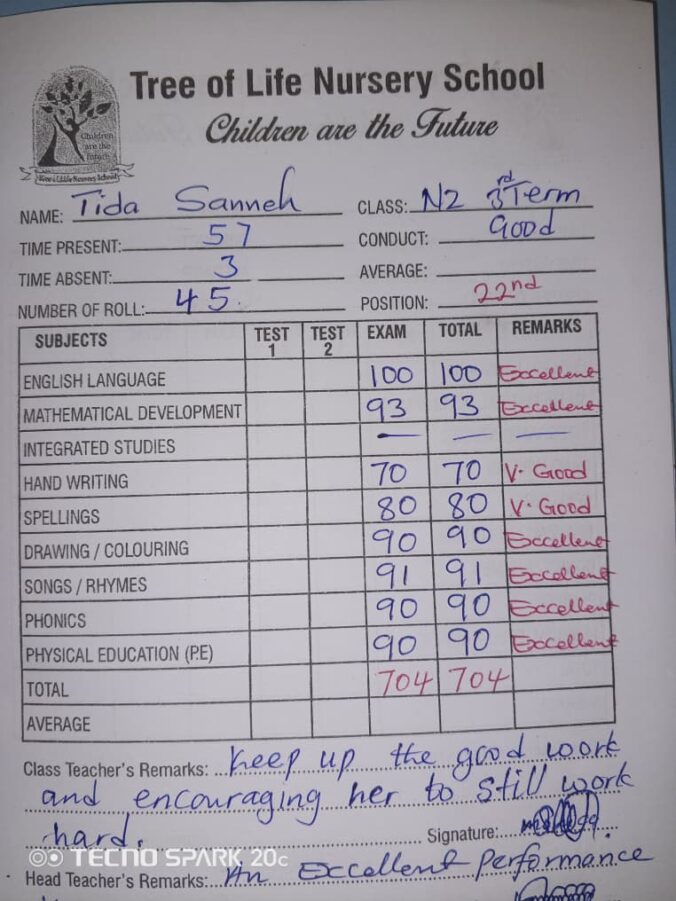 Tree of Life Nursery School
Children are the Future
Children
are the
Future
Tree of Life Nursery School
NAME: Tida Sanneh CLASS: N2 3rd Term
TIME PRESENT: 57 CONDUCT: Good
TIME ABSENT: 3 AVERAGE:
NUMBER OF ROLL: 45. POSITION: 22nd
SUBJECTS TEST 1 TEST 2 EXAM TOTAL REMARKS
ENGLISH LANGUAGE 100 100 Excellent
MATHEMATICAL DEVELOPMENT 93 93 Excellent
INTEGRATED STUDIES — — —
HAND WRITING 70 70 V. Good
SPELLINGS 80 80 V. Good
DRAWING / COLOURING 90 90 Excellent
SONGS / RHYMES 91 91 Excellent
PHONICS 90 90 Excellent
PHYSICAL EDUCATION (P.E) 90 90 Excellent
TOTAL 704 704
AVERAGE
Class Teacher's Remarks: Keep up the good work
and encouraging her to still work
hard. Signature:
TECNO SPARK 20c
Head Teacher's Remarks: An Excellent performance